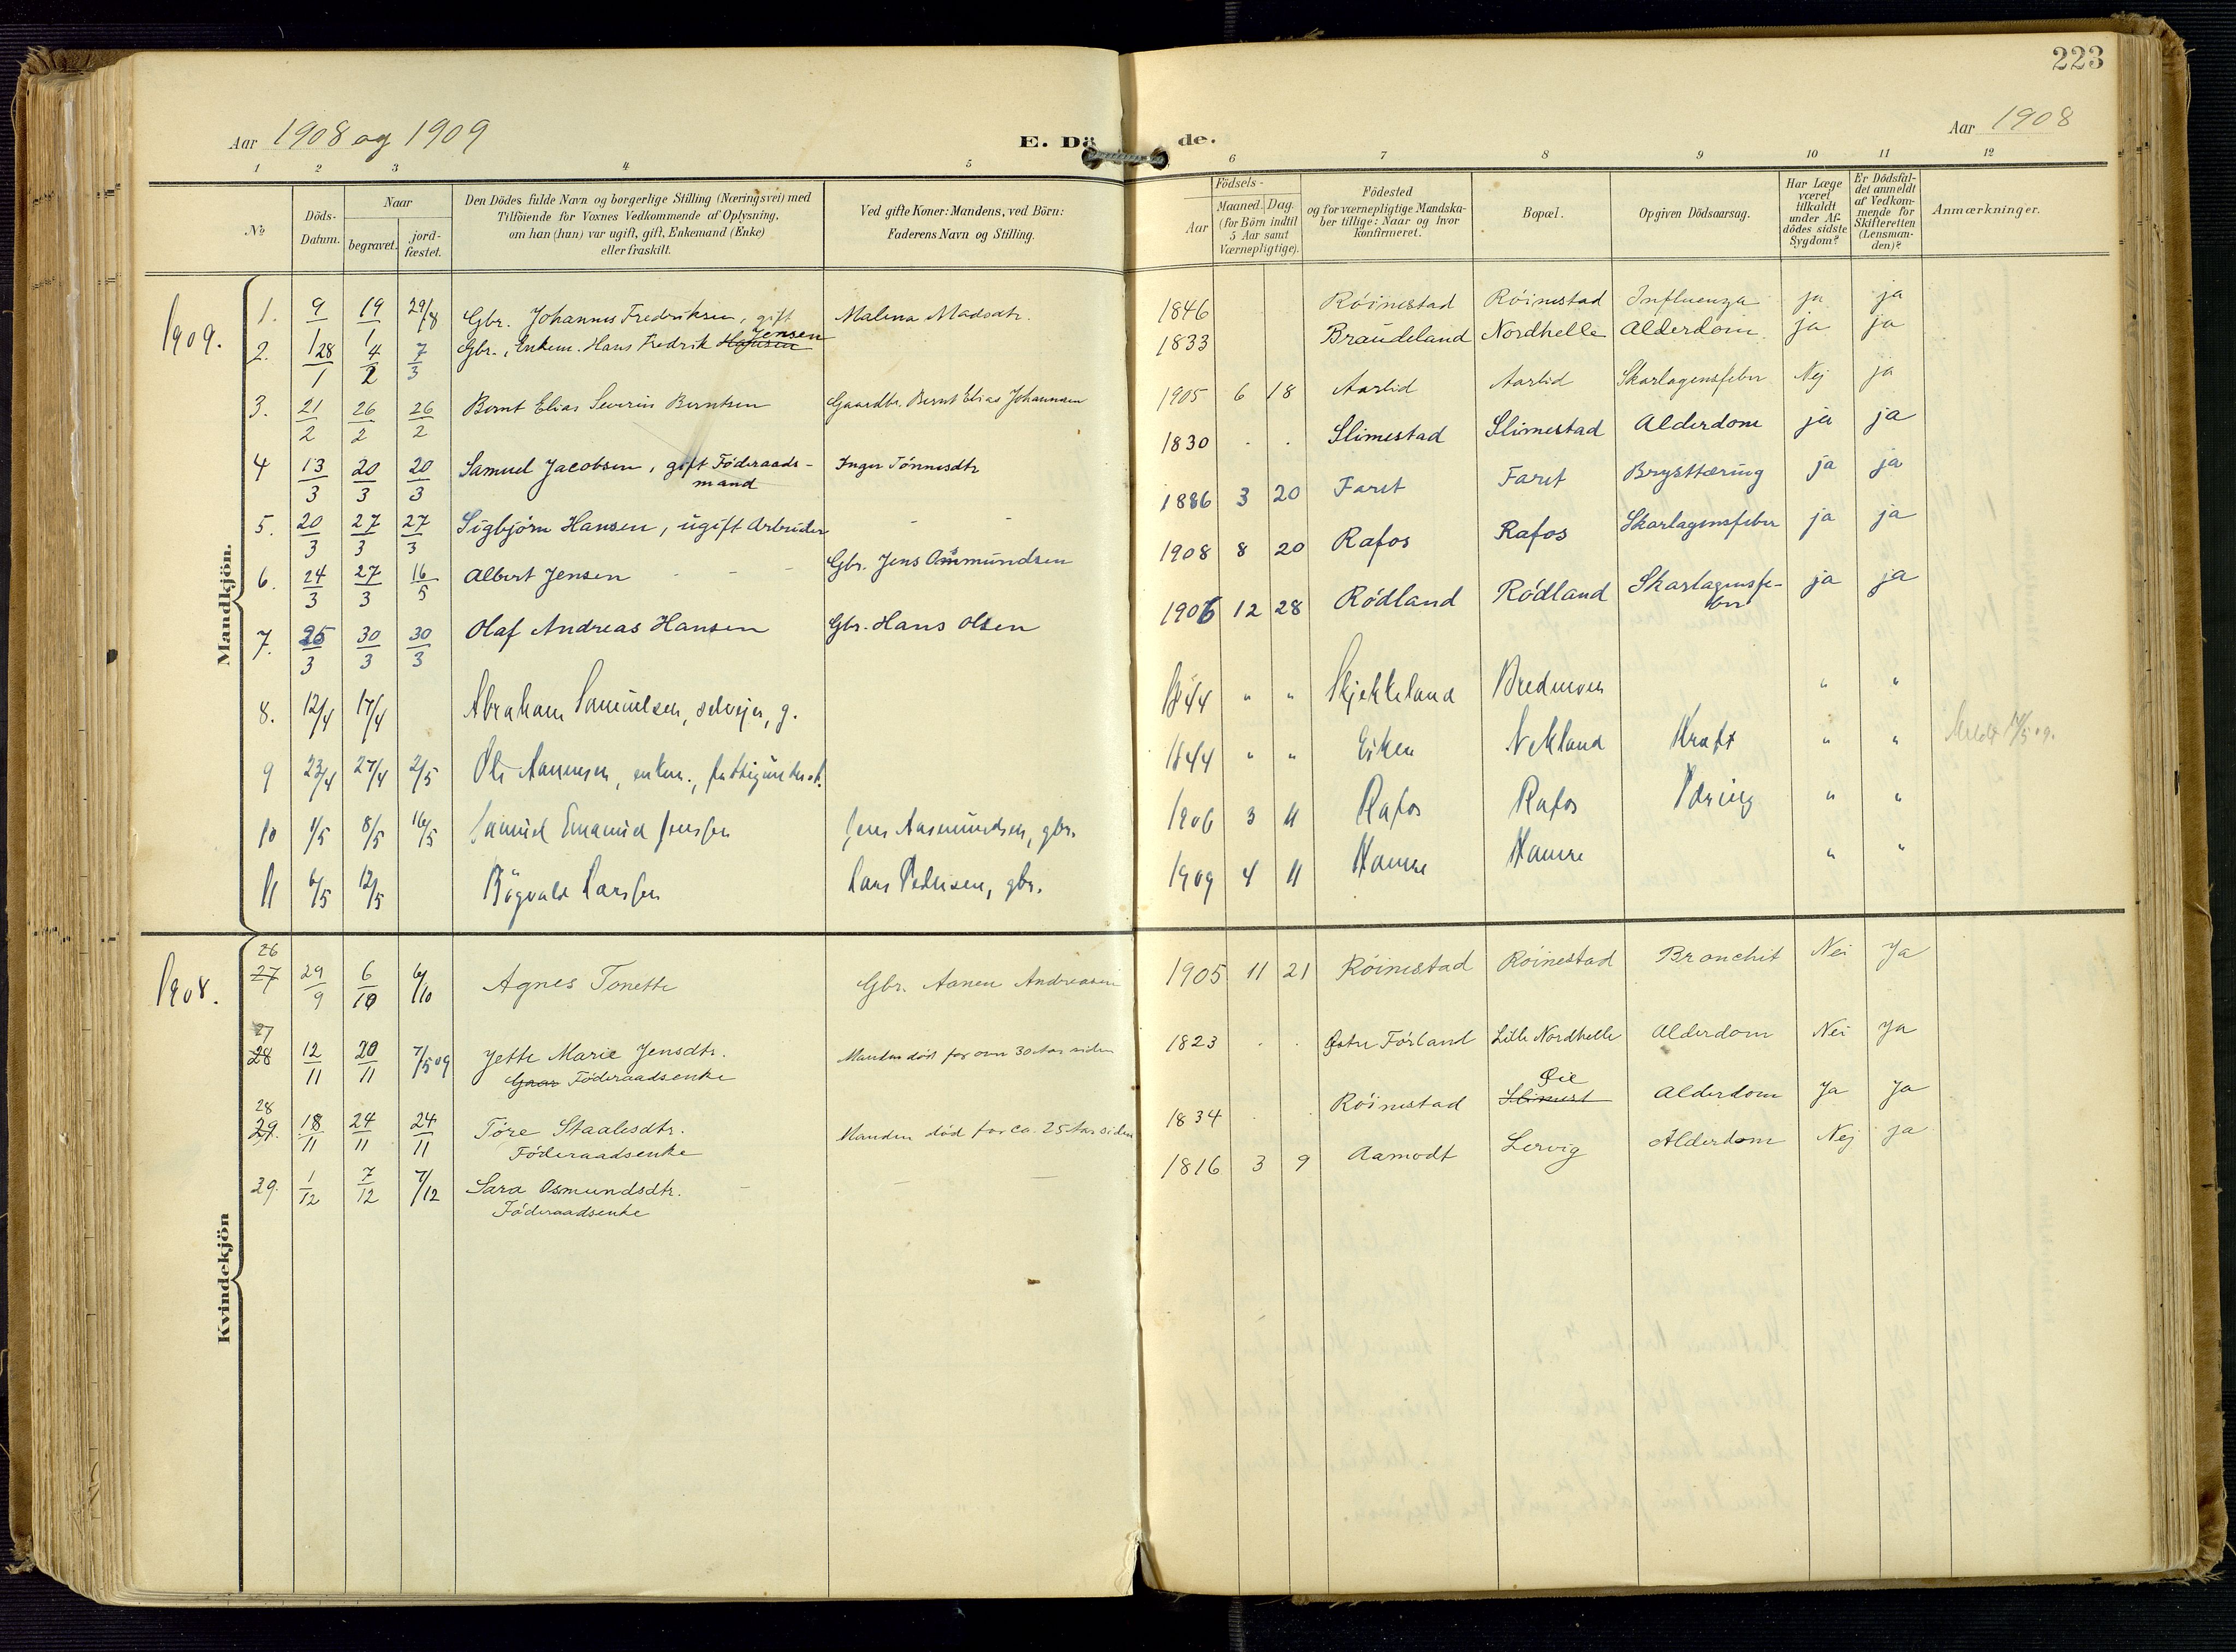 223
Aar 1908 og 1909
E. Dä
de.
Aar 1908
1 2 3 4 5 6 7 8 9 10 11 12
No
Döds-Datum.
Naar
begravet.
jord-fæstet.
Den Dödes fulde Navn og borgerlige Stilling (Næringsvei) med
Tilföiende for Voxnes Vedkommende af Oplysning,
om han (hun) var ugift, gift, Enkemand (Enke)
eller fraskilt.
Ved gifte Koner: Mandens, ved Börn:
Faderens Navn og Stilling.
Födsels-
Aar
Maaned. Dag.
(for Börn indtil
5 Aar samt
Værnepligtige).
Födested
og for værnepligtige Mandska-
ber tillige: Naar og hvor
konfirmeret.
Bopæl.
Opgiven Dödsaarsag.
Har Læge
været
tilkaldt
under Af-
dödes sidste
Sygdom?
Er Dödsfal-
det anmeldt
af Vedkom-
mende for
Skifteretten
(Lensman-
den)?
Anmærkninger.
Mandkjön.
1909.
1. 9/1 19/1 29/8 Gbr. Johannes Fredriksen, gift Malena Madsdtr. 1846 Röinestad Röinestad Influenza ja ja
2. 28/1 4/2 7/3 Gbr., Enkem. Hans Fredrik Hansen Jensen 1833 Braudeland Nordhelle Alderdom ja ja
3. 21/2 26/2 26/2 Bernt Elias Severin Berntsen Gaardbr. Bernt Elias Johannesen 1905 6 18 Aarlid Aarlid Skarlagensfeber Nej ja
4 13/3 20/3 20/3 Samuel Jacobsen, gift Föderaads-mand Inger Tönnesdtr 1830 . . Slimestad Slimestad Alderdom ja ja
5. 20/3 27/3 27/3 Sigbjörn Hansen, ugift Arbeider - - 1886 3 20 Faret Faret Brysttæring ja ja
6. 24/3 27/3 16/5 Albert Jensen - - - Gbr. Jens Aasmundsen 1908 8 20 Rafos Rafos Skarlagensfeber ja ja
7. 25/3 30/3 30/3 Olaf Andreas Hansen Gbr. Hans Olsen 1906 12 28 Rödland Rödland Skarlagensfe-ber ja ja
8. 12/4 17/4 Abraham Samuelsen, selvejer, g. 1844 " " Skjekkeland Bredmoen " "
9 23/4 27/4 2/5 Ole Aanensen, enkem., fattigunderst. 1844 " " Eiken Nekland Kræft " " Meldt 14/5 09.
10 1/5 8/5 16/5 Samuel Emanuel Jensen Jens Aasmundsen, gbr. 1906 3 11 Rafos Rafos Tæring " "
11 6/5 12/5 Rögvald Larsen Lars Pedersen, gbr. 1909 4 11 Hamre Hamre " "
Kvindekjön
1908.
26 27 29/9 6/10 6/10 Agnes Tonette Gbr. Aanen Andreasen 1905 11 21 Röinestad Röinestad Bronchit Nei Ja
27 28 12/11 20/11 7/5 09 Jette Marie Jensdtr. Manden död for over 30 Aar siden 1823 . . Östre Förland Lille Nordhelle Alderdom Nei Ja
Gaar Föderaadsenke
28 29. 18/11 24/11 24/11 Töre Staalesdtr. Manden död for ca. 25 Aar siden 1834 Röinestad Slimest Öie Alderdom Ja Ja
Föderaadsenke
29. 1/12 7/12 7/12 Sara Osmundsdtr. - - - 1816 3 9 Aamodt Lervig Alderdom Nej ja
Föderaadsenke